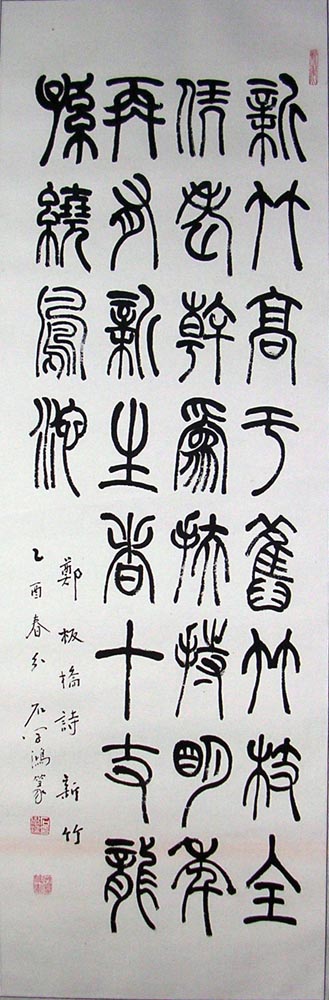 新竹高于舊竹枝全
凭老幹爲扶持明年
再有新生者十丈龍
孫繞鳳池
鄭板橋詩新竹
乙酉春分 石鴻篆